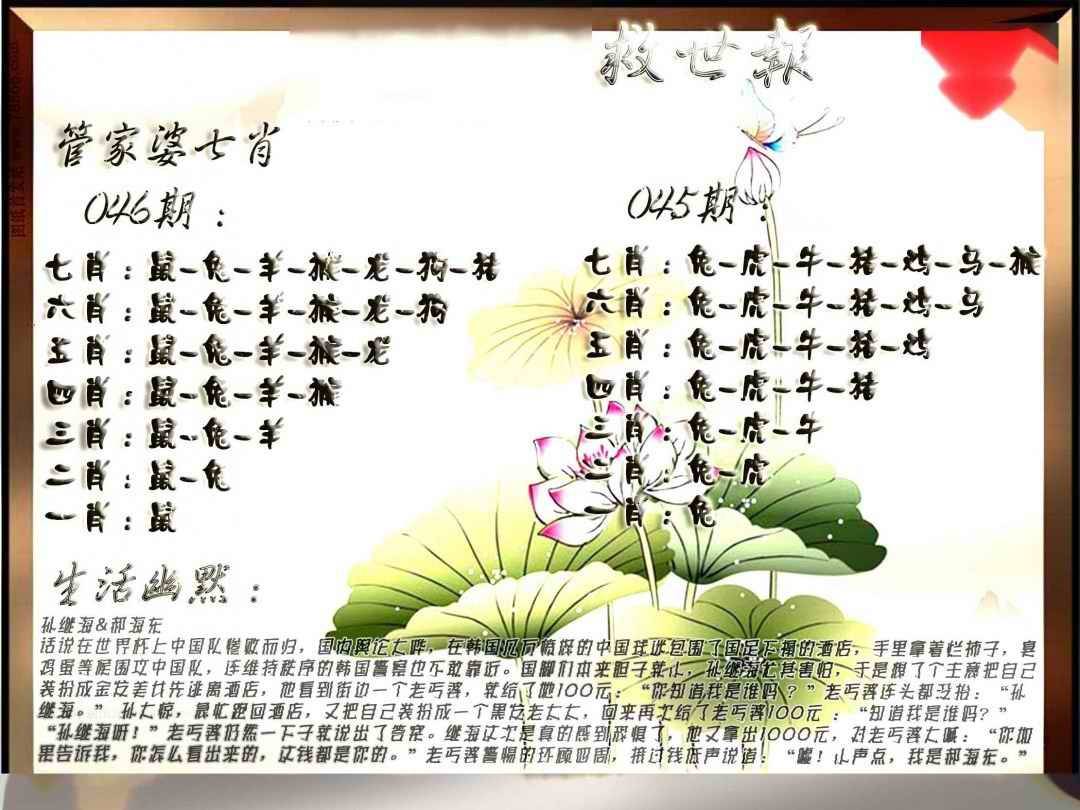 救世報
管家婆七肖
046期：
七肖：鼠-兔-羊-猴-龙-狗-猪
六肖：鼠-兔-羊-猴-龙-狗
五肖：鼠-兔-羊-猴-龙
四肖：鼠-兔-羊-猴
三肖：鼠-兔-羊
二肖：鼠-兔
一肖：鼠
045期：
七肖：兔-虎-牛-猪-鸡-马-猴
六肖：兔-虎-牛-猪-鸡-马
五肖：兔-虎-牛-猪-鸡
四肖：兔-虎-牛-猪
三肖：兔-虎-牛
二肖：兔-虎
一肖：兔
生活幽默：
孙继海&郝海东
话说在世界杯上中国队惨败而归，国内舆论大哗，在韩国几万愤怒的中国球迷包围了国足下榻的酒店，手里拿着烂柿子，臭
鸡蛋等候围攻中国队，连维持秩序的韩国警察也不敢靠近。国脚们本来胆子就小，孙继海尤其害怕，于是想了个主意把自己
装扮成金发美女先逃离酒店，他看到街边一个老丐客，就给了他100元：“你知道我是谁吗？”老丐客连头都没抬：“孙
继海。” 孙大惊，急忙跑回酒店，又把自己装扮成一个黑发老太太，回来再次给了老丐客100元：“知道我是谁吗？”
“孙继海呀！”老丐客仍然一下子就说出了答案。继海这次是真的感到恐惧了，他又拿出1000元，对老丐客大喊：“你如
果告诉我，你怎么看出来的，这钱都是你的。”老丐客警惕的环顾四周，接过钱低声说道：“嘘！小声点，我是郝海东。”